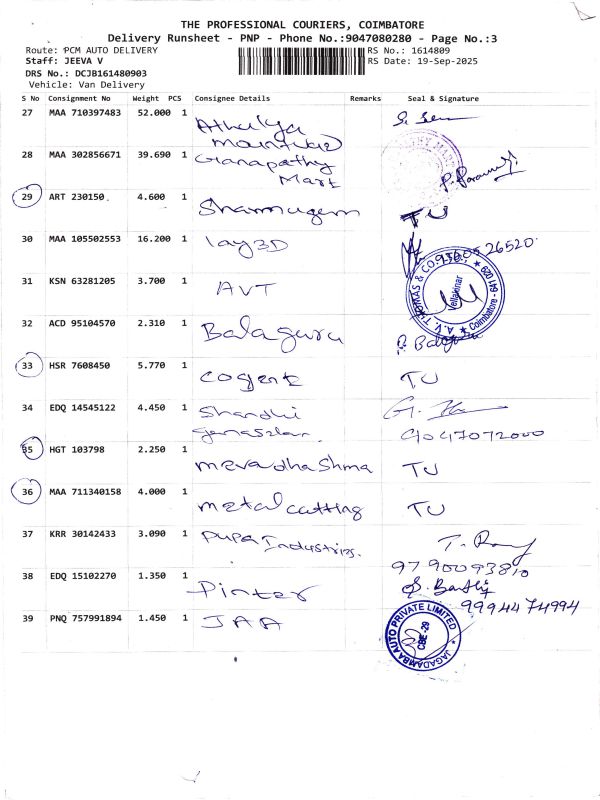 THE PROFESSIONAL COURIERS, COIMBATORE
Delivery Runsheet - PNP - Phone No.:9047080280 - Page No.:3
Route: PCM AUTO DELIVERY
RS No: 1614809
Staff: JEEVA V
RS Date: 19-Sep-2025
DRS No: DCJB161480903
Vehicle: Van Delivery
S No Consignment No Weight PCS Consignee Details Remarks Seal & Signature
27 MAA 710397483 52.000 1 Athulya
28 MAA 302856671 39.690 1 Ganapathy
Mart
29 ART 230150 4.600 1 Shanmugam TU
30 MAA 105502553 16.200 1 lay3D
26520
31 KSN 63281205 3.700 1 AVT
A.V. THOMAS & CO. Vellakinar Coimbatore - 641 029
32 ACD 95104570 2.310 1 Balaguru
33 HSR 7608450 5.770 1 cogent TU
34 EDQ 14545122 4.450 1 Shandhi
9047072000
35 HGT 103798 2.250 1 mevadhashma TU
36 MAA 711340158 4.000 1 metal cutting TU
37 KRR 30142433 3.090 1 pupa Industries.
9790093810
38 EDQ 15102270 1.350 1 Pinter
9994474994
39 PNQ 757991894 1.450 1 JAA
JAGADAMBA AUTO PRIVATE LIMITED CBE-29